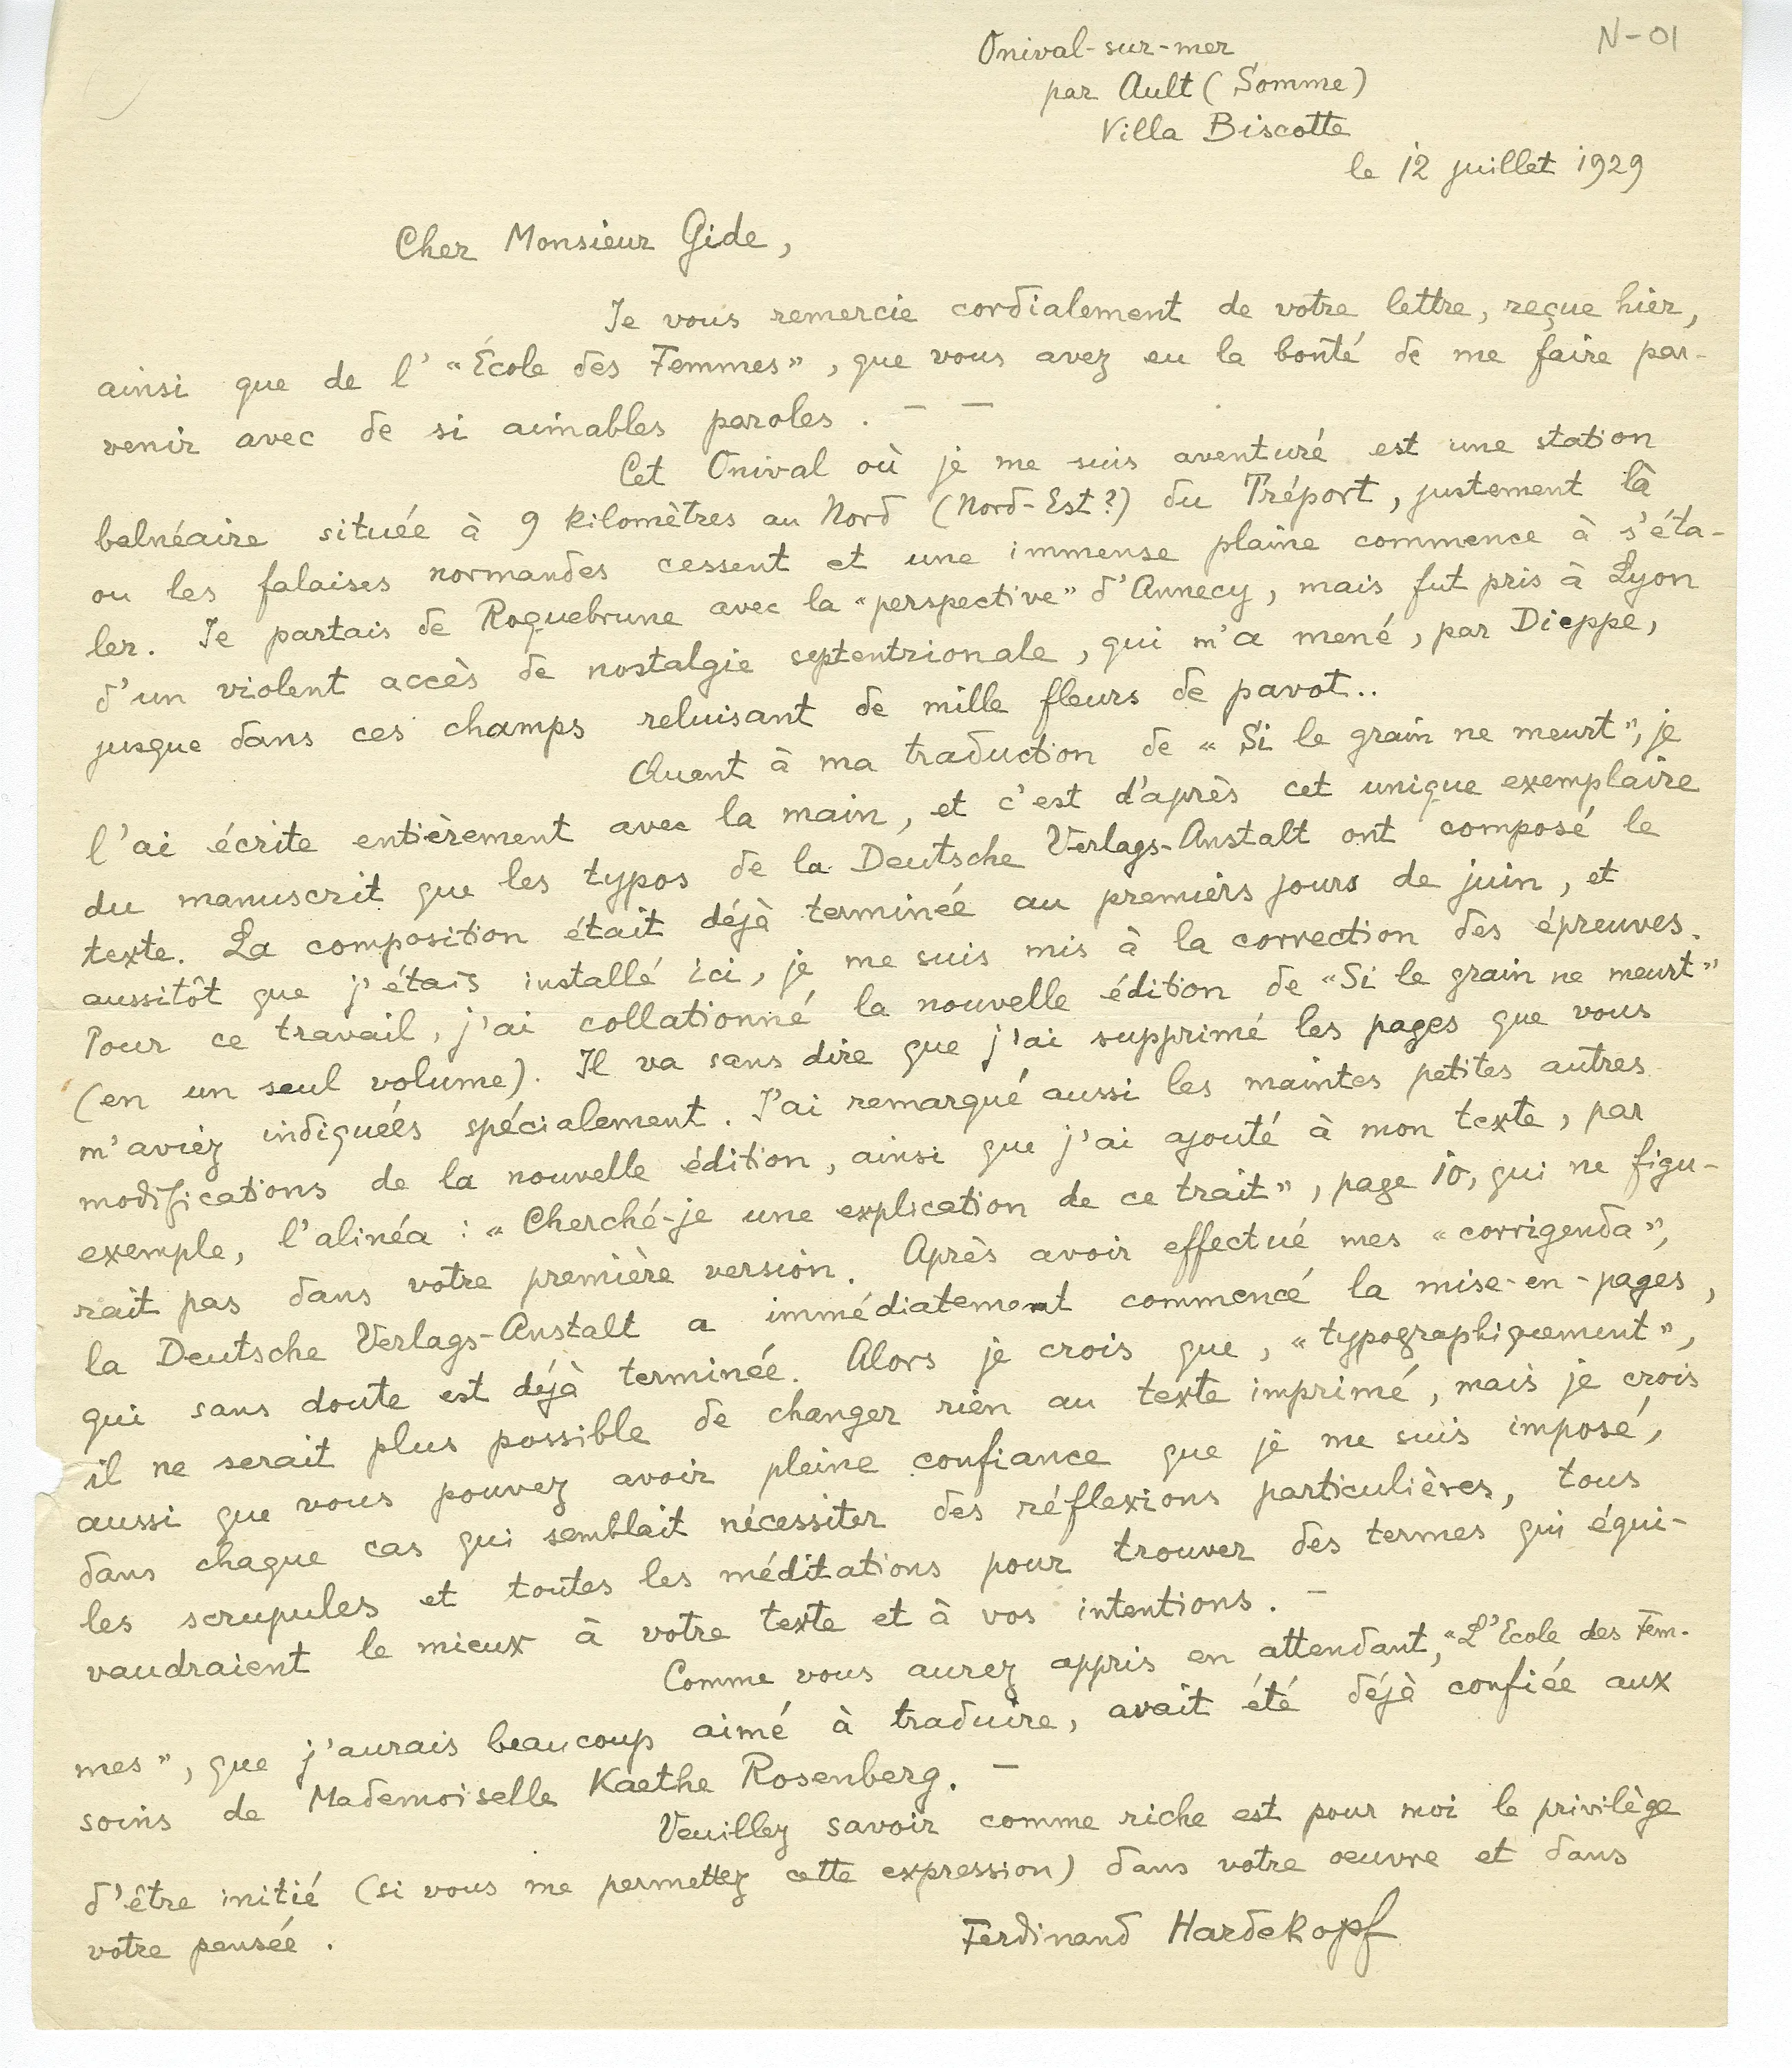 N-01
Onival-sur-mer
par Ault (Somme)
Villa Biscotte
le 12 juillet 1929
Cher Monsieur Gide,
Je vous remercie cordialement de votre lettre, reçue hier,
ainsi que de l' "École des Femmes", que vous avez eu la bonté de me faire par-
venir avec de si aimables paroles. — —
Cet Onival où je me suis aventuré est une station
balnéaire située à 9 kilomètres au Nord (Nord-Est?) du Tréport, justement là
ou les falaises normandes cessent et une immense plaine commence à s'éta-
ler. Je partais de Roquebrune avec la "perspective" d'Annecy, mais fut pris à Lyon
d'un violent accès de nostalgie septentrionale, qui m'a mené, par Dieppe,
jusque dans ces champs reluisant de mille fleurs de pavot..
Quant à ma traduction de "Si le grain ne meurt", je
l'ai écrite entièrement avec la main, et c'est d'après cet unique exemplaire
du manuscrit que les typos de la Deutsche Verlags-Anstalt ont composé le
texte. La composition était déjà terminée au premiers jours de juin, et
aussitôt que j'étais installé ici, je me suis mis à la correction des épreuves.
Pour ce travail, j'ai collationné la nouvelle édition de "Si le grain ne meurt"
(en un seul volume). Il va sans dire que j'ai supprimé les pages que vous
m'aviez indiquées spécialement. J'ai remarqué aussi les maintes petites autres
modifications de la nouvelle édition, ainsi que j'ai ajouté à mon texte, par
exemple, l'alinéa : "Cherché-je une explication de ce trait", page 10, qui ne figu-
rait pas dans votre première version. Après avoir effectué mes "corrigenda",
la Deutsche Verlags-Anstalt a immédiatement commencé la mise-en-pages,
qui sans doute est déjà terminée. Alors je crois que, "typographiquement",
il ne serait plus possible de changer rien au texte imprimé, mais je crois
aussi que vous pouvez avoir pleine confiance que je me suis imposé,
dans chaque cas qui semblait nécessiter des réflexions particulières, tous
les scrupules et toutes les méditations pour trouver des termes qui équi-
vaudraient le mieux à votre texte et à vos intentions. —
Comme vous aurez appris en attendant, "L'Ecole des Fem-
mes", que j'aurais beaucoup aimé à traduire, avait été déjà confiée aux
soins de Mademoiselle Kaethe Rosenberg. —
Veuillez savoir comme riche est pour moi le privilège
d'être initié (si vous me permettez cette expression) dans votre oeuvre et dans
votre pensée.
Ferdinand Hardekopf